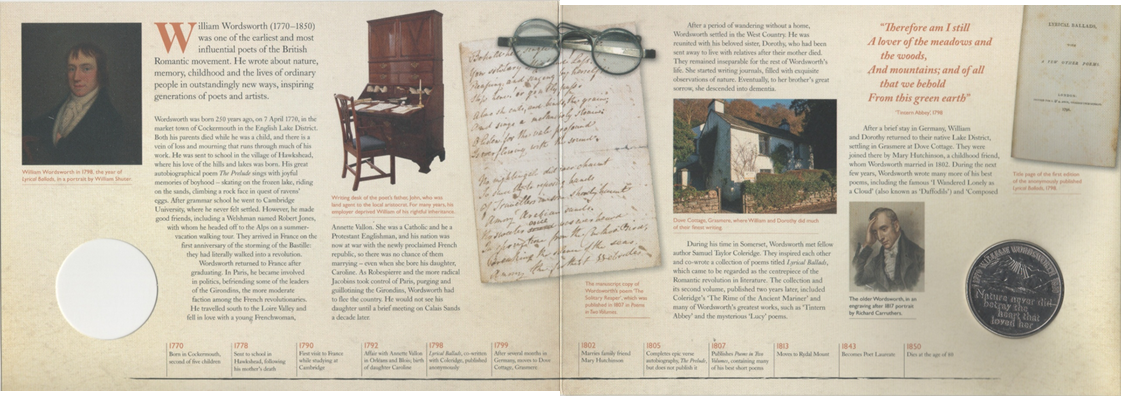 William Wordsworth (1770–1850)
was one of the earliest and most
influential poets of the British
Romantic movement. He wrote about nature,
memory, childhood and the lives of ordinary
people in outstandingly new ways, inspiring
generations of poets and artists.
Wordsworth was born 250 years ago, on 7 April 1770, in the
market town of Cockermouth in the English Lake District.
Both his parents died while he was a child, and there is a
vein of loss and mourning that runs through much of his
work. He was sent to school in the village of Hawkshead,
where his love of the hills and lakes was born. His great
autobiographical poem The Prelude sings with joyful
memories of boyhood – skating on the frozen lake, riding
on the sands, climbing a rock face in quest of ravens'
eggs. After grammar school he went to Cambridge
University, where he never felt settled. However, he made
good friends, including a Welshman named Robert Jones,
with whom he headed off to the Alps on a summer-
vacation walking tour. They arrived in France on the
first anniversary of the storming of the Bastille:
they had literally walked into a revolution.
Wordsworth returned to France after
graduating. In Paris, he became involved
in politics, befriending some of the leaders
of the Girondins, the more moderate
faction among the French revolutionaries.
He travelled south to the Loire Valley and
fell in love with a young Frenchwoman,
William Wordsworth in 1798, the year of
Lyrical Ballads, in a portrait by William Shuter.
Writing desk of the poet's father, John, who was
land agent to the local aristocrat. For many years, his
employer deprived William of his rightful inheritance.
Annette Vallon. She was a Catholic and he a
Protestant Englishman, and his nation was
now at war with the newly proclaimed French
republic, so there was no chance of them
marrying – even when she bore his daughter,
Caroline. As Robespierre and the more radical
Jacobins took control of Paris, purging and
guillotining the Girondins, Wordsworth had
to flee the country. He would not see his
daughter until a brief meeting on Calais Sands
a decade later.
The manuscript copy of
Wordsworth's poem 'The
Solitary Reaper', which was
published in 1807 in Poems
in Two Volumes.
After a period of wandering without a home,
Wordsworth settled in the West Country. He was
reunited with his beloved sister, Dorothy, who had been
sent away to live with relatives after their mother died.
They remained inseparable for the rest of Wordsworth's
life. She started writing journals, filled with exquisite
observations of nature. Eventually, to her brother's great
sorrow, she descended into dementia.
Dove Cottage, Grasmere, where William and Dorothy did much
of their finest writing.
During his time in Somerset, Wordsworth met fellow
author Samuel Taylor Coleridge. They inspired each other
and co-wrote a collection of poems titled Lyrical Ballads,
which came to be regarded as the centrepiece of the
Romantic revolution in literature. The collection and
its second volume, published two years later, included
Coleridge's 'The Rime of the Ancient Mariner' and many
of Wordsworth's greatest works, such as 'Tintern
Abbey' and the mysterious 'Lucy' poems.
"Therefore am I still
A lover of the meadows and
the woods,
And mountains; and of all
that we behold
From this green earth"
'Tintern Abbey', 1798
After a brief stay in Germany, William
and Dorothy returned to their native Lake District,
settling in Grasmere at Dove Cottage. They were
joined there by Mary Hutchinson, a childhood friend,
whom Wordsworth married in 1802. During the next
few years, Wordsworth wrote many more of his best
poems, including the famous 'I Wandered Lonely as
a Cloud' (also known as 'Daffodils') and 'Composed
The older Wordsworth, in an
engraving after 1817 portrait
by Richard Carruthers.
LYRICAL BALLADS,
WITH
A FEW OTHER POEMS.
LONDON:
Title page of the first edition
of the anonymously published
Lyrical Ballads, 1798.
WILLIAM WORDSWORTH
Nature never did
betray the
heart that
loved her
1770
Born in Cockermouth,
second of five children
1778
Sent to school at
Hawkshead, following
his mother's death
1790
First visit to France
while studying at
Cambridge
1792
Affair with Annette Vallon
in Orléans and Blois, birth
of daughter Caroline
1798
Lyrical Ballads, co-written
with Coleridge, published
anonymously
1799
After several months in
Germany, moves to Dove
Cottage, Grasmere
1802
Marries family friend
Mary Hutchinson
1805
Completes epic verse
autobiography, The Prelude
but does not publish it
1807
Publishes Poems in Two
Volumes, containing many
of his best short poems
1813
Moves to Rydal Mount
1843
Becomes Poet Laureate
1850
Dies at the age of 80